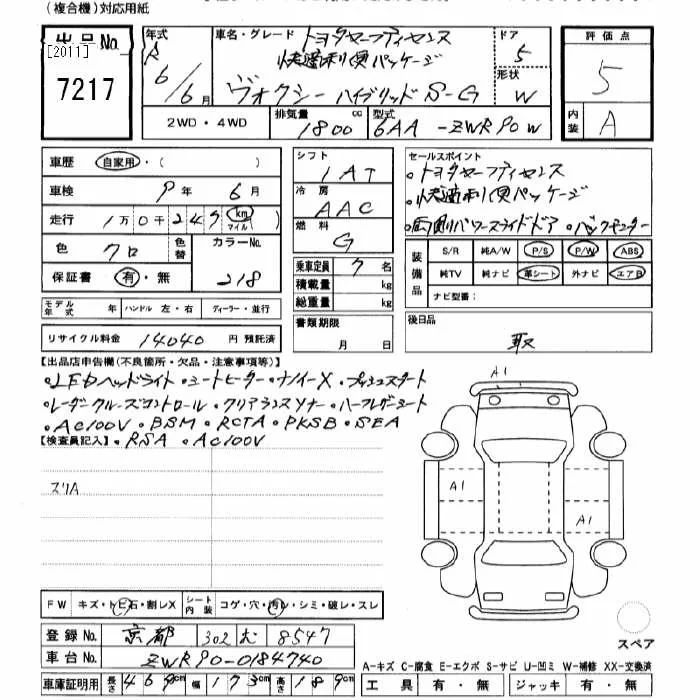 (複合機)対応用紙
出品No. [2011] 7217
年式 R 6/6月
車名・グレード トヨタセーフティセンス
快適利便パッケージ
ヴォクシー ハイブリッド S-G
ドア 5
形状 W
評価点 5
内装 A
2WD・4WD
排気量 1800 cc
型式 6AA-ZWR90W
車歴 自家用・( )
車検 9年 6月
走行 1万0千249 km マイル ( )
色 クロ
色替
カラーNo. 218
保証書 有・無
シフト 1AT
冷房 AAC
燃料 G
乗車定員 7名
積載量 kg
総重量 kg
セールスポイント
・トヨタセーフティセンス
・快適利便パッケージ
・両側パワースライドドア ・バックモニター
装備品 S/R 純A/W P/S P/W ABS
純TV 純ナビ 革シート 外ナビ エアB
ナビ型番:
モデル年式 年 ハンドル 左・右 ディーラー・並行
リサイクル料金 14040 円 預託済
書類期限 月 日
後日品 取
【出品店申告欄(不良箇所・欠品・注意事項等)】
・LEDヘッドライト・シートヒーター・ナノイーX・プッシュスタート
・レーダークルーズコントロール・クリアランスソナー・ハーフレザーシート
・AC100V・BSM・RCTA・PKSB・SEA
【検査員記入】・RSA・AC100V
スリA
A1
A1
A1
FW キズ・トビ石・割レX
シート内装 コゲ・穴・汚レ・シミ・破レ・スレ
登録No. 京都 302 む 8547
車台No. ZWR90-0184740
車庫証明用 長さ 469cm 幅 173cm 高さ 189cm
スペア
A-キズ C-腐食 E-エクボ S-サビ U-凹ミ W-補修 XX-交換済
工具 有・無 ジャッキ 有・無